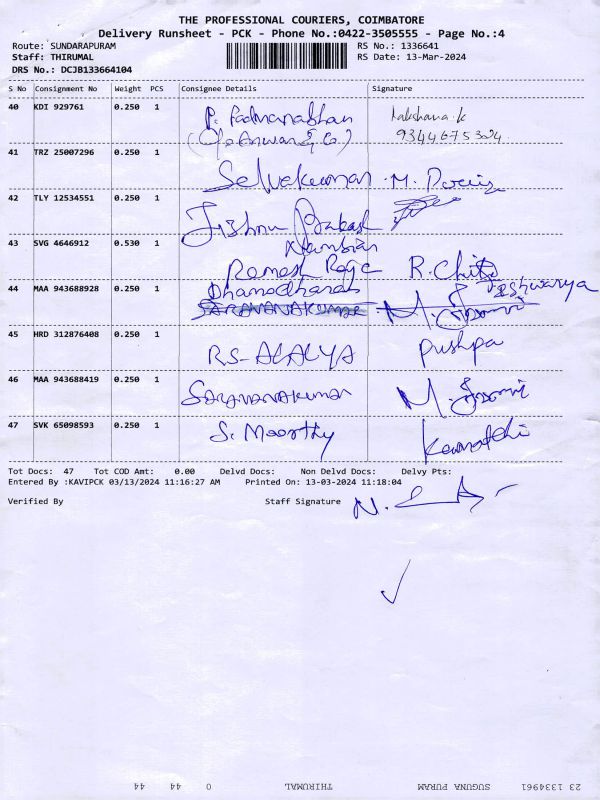 THE PROFESSIONAL COURIERS, COIMBATORE
Delivery Runsheet - PCK - Phone No.:0422-3505555 - Page No.:4
Route: SUNDARAPURAM RS No.: 1336641
Staff: THIRUMAL RS Date: 13-Mar-2024
DRS No.: DCJB133664104
S No Consignment No Weight PCS Consignee Details Signature
40 KDI 929761 0.250 1 P. Padmanabhan
(C/o Anwar & Co)
9344675304
41 TRZ 25007296 0.250 1 Selvakumar M.
42 TLY 12534551 0.250 1 Jishnu Prakash
Nambiar
43 SVG 4646912 0.530 1 Ramesh Raja R. Chitra
44 MAA 943688928 0.250 1 Dhanadharan Ishwarya
SARAVANAKUMAR
45 HRD 312876408 0.250 1 RS-ACALYA pushpa
46 MAA 943688419 0.250 1 SARAVANAKUMAR
47 SVK 65098593 0.250 1 S. Moorthy
Tot Docs: 47 Tot COD Amt: 0.00 Delvd Docs: Non Delvd Docs: Delvy Pts:
Entered By :KAVIPCK 03/13/2024 11:16:27 AM Printed On: 13-03-2024 11:18:04
Verified By Staff Signature
23 1334961 SUGUNA PURAM THIRUMAL 0 44 44